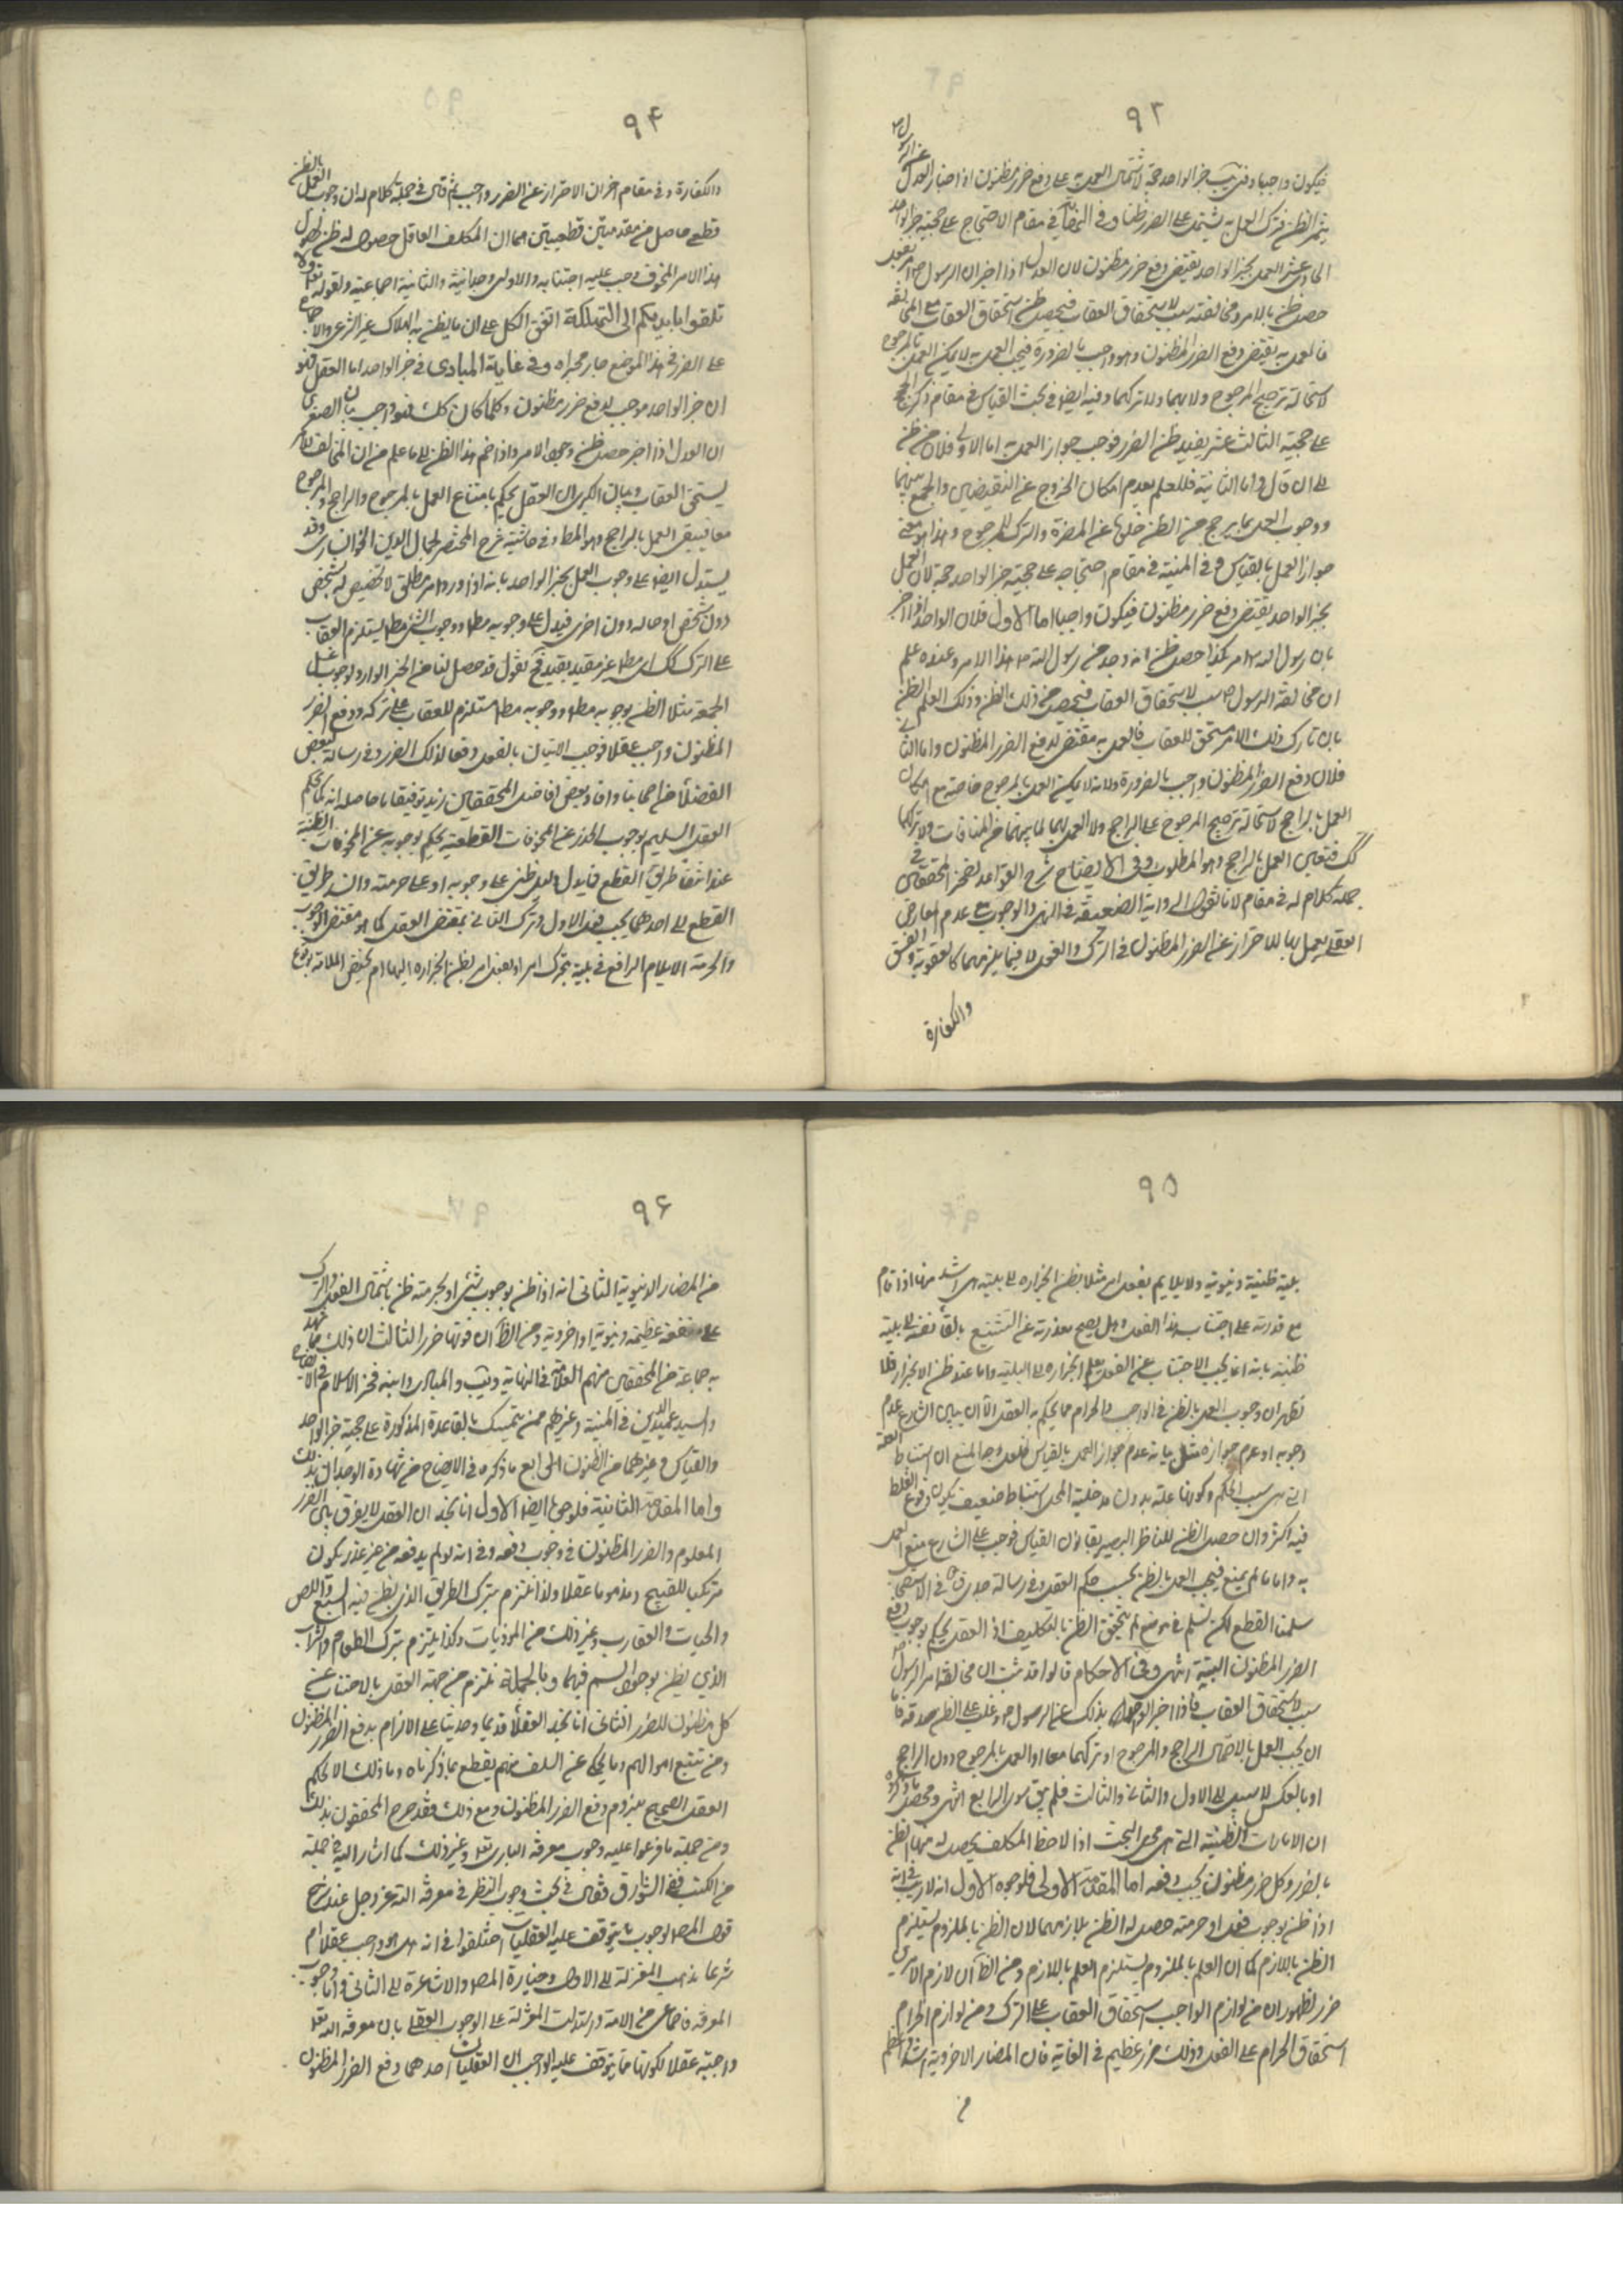 ٩٢
فيكون واجبا وفى يب خبر الواحد حجة لاشتمال العمل به على دفع ضرر مظنون اذ اخبار العدل عن الرسول ص
يثمر الظن فترك العمل به يشتمل على الضرر ظنا وفى النهاية فى مقام الاحتجاج على حجية خبر الواحد
الحادى عشر العمل بخبر الواحد يقتضى دفع ضرر مظنون لان العدل اذا اخبر ان الرسول ص امر بفعل
حصل ظن بالامر ومخالفته سبب لاستحقاق العقاب فيحصل ظن استحقاق العقاب مع المخالفة
فالعمل به يقتضى دفع الضرر المظنون وهو واجب بالضرورة فيجب العمل به لا يمكن العمل بالمرجوح
لاستحالة ترجيح المرجوح ولا بهما ولا تركهما وفيه ايضا فى بحث القياس فى مقام ذكر الحجج
على حجيته الثالث عشر يفيد ظن الضرر فوجب جواز العمل به اما الاولى فلان من ظن
الى ان قال واما الثانية فللعلم بعدم امكان الخروج عن النقيضين والجمع بينهما
ووجوب العمل بما يرجح من الظن خلوه عن المضرة والترك للمرجوح وهذا هو معنى
جواز العمل بالقياس وفى المنية فى مقام احتجاجه على حجية خبر الواحد حجة لان العمل
بخبر الواحد يقتضى دفع ضرر مظنون فيكون واجبا اما الاول فلان الواحد اذا اخبر
بان رسول الله ص امر بكذا حصل ظن انه وجد من رسول الله ص هذا الامر وعنده علم
ان مخالفة الرسول ص سبب لاستحقاق العقاب فيحصل من ذلك الظن وذلك العلم الظن
بان تارك ذلك الامر مستحق للعقاب فالعمل به مقتض لدفع الضرر المظنون واما الثانى
فلان دفع الضرر المظنون واجب بالضرورة ولانه لا يمكن العمل بالمرجوح خاصة مع امكان
العمل بالراجح لاستحالة ترجيح المرجوح على الراجح ولا العمل بهما لما بينهما من المنافات ولا تركهما
كك فتعين العمل بالراجح وهو المطلوب وفى الايضاح شرح القواعد لفخر المحققين فى
جملة كلام له فى مقام لانا نقول الرواية الضعيفة فى النهى والوجوب مع عدم المعارض
العقلى يعمل بها للاحتراز عن الضرر المظنون فى الترك والفعل لا فيما يلزمهما كالعقوبة والفسق
والكفارة
٩٤
والكفارة وفى مقام اخر ان الاحتراز عن الضرر واجب ثم قال فى جملة كلام له ان وجوب العمل بالظن
قطعى حاصل من مقدمتين قطعيتين هما ان المكلف العاقل حصول له ظن لحصول
هذا الامر المخوف وجب عليه اجتنابه والاولى وجدانية والثانية اجماعية ولقوله تعالى ولا
تلقوا بايديكم الى التهلكة اتفق الكل على ان ما يظن به الهلاك عن الشرع والاجماع
على الضرر فى هذا الموضع صار مجراه وفى غاية المبادى فى خبر الواحد اما العقل فهو
ان خبر الواحد موجب لدفع ضرر مظنون وكلما كان كك فهو واجب بيان الصغرى
ان العدل اذا اخبر حصل ظن وجود الامر واذا ضم هذا الظن الى ما علم من ان المخالف للامر
يستحق العقاب وبيان الكبرى ان العقل يحكم بامتناع العمل بالمرجوح والراجح والمرجوح
معا فيبقى العمل بالراجح وهو المط وفى حاشية شرح المختصر لجمال الدين الخوانسارى وقد
يستدل ايضا على وجوب العمل بخبر الواحد بانه اذا ورد امر مطلق لا تخصيص له بشخص
دون شخص او حالة دون اخرى فيدل على وجوبه مط ووجوب الشىء مط يستلزم العقاب
على الترك كك اى مط من غير مقيد بقيد فح نقول قد حصل لنا من الخبر الوارد لوجوب غسل
الجمعة مثلا الظن بوجوبه مط ووجوبه مط مستلزم للعقاب على تركه ودفع الضرر
المظنون واجب عقلا فوجب الاتيان بالفعل دفعا لذلك الضرر وفى رسالة لبعض
الفضلاء من اصحابنا وافاد بعض افاضل المحققين زيد توفيقا ما حاصله انه كما يحكم
العقل السليم بوجوب الحذر عن المخوفات القطعية يحكم بوجوبه عن المخوفات الظنية
عند انتفاء طريق القطع فما دل دليل ظنى على وجوبه او على حرمته وانسد طريق
القطع الى احدهما يجب فعل الاول وترك الثانى بمقتضى العقل كما هو مقتضى الوجوب
والحرمة الا يلام الرافع فى بلية بترك امر او بفعل امر يظن انجراره اليها ام يختص الملامة بوقوع
٩٥
بلية ظنية دنيوية ولا يلايم بفعل امر مثلا يظن انجراره الى بلية هى اشد منها اذا قام
مع قدرته على اجتناب هذا الفعل وهل يصح معذرته عن التشنيع بالقاء نفسه الى بلية
ظنية بانه انما يجب الاجتناب عن الفعل بعلم انجراره الى البلية واما عند ظن الانجرار فلا
فظهر ان وجوب العمل بالظن فى الواجب والحرام مما يحكم به العقل الا ان يبين الشارع عدم
وجوبه او عدم جوازه مثل بيانه عدم جواز العمل بالقياس فلعل وجه المنع ان استنباط العلة
التى هى سبب الحكم وكونها علة بدون مدخلية المحل استنباط ضعيف يكون وقوع الغلط
فيه اكثر وان حصل الظن للناظر البصير بقانون القياس فوجب على الشارع منع العمل
به واما ما لم يمنع فيجب العمل بالظن بحسب حكم العقل وفى رسالة جدى قده فى الاستصحاب
سلمنا القطع لكن نسلم فى موضع لم يتحقق الظن بالتكليف اذ العقل يحكم بوجوب دفع
الضرر المظنون البتة انتهى وفى الاحكام قالوا قد ثبت ان مخالفة امر الرسول ص
سبب لاستحقاق العقاب فاذا اخبر الواحد بذلك عن الرسول ص وغلب على الظن صدقه فاما
ان يجب العمل بالاحتمال الراجح والمرجوح او تركهما معا او العمل بالمرجوح دون الراجح
او بالعكس لا سبيل الى الاول والثانى والثالث فلم يبق سوى الرابع انتهى ومحصل ما ذكروه
ان الامارات الظنية التى هى محل البحث اذا لاحظ المكلف يحصل له منها الظن
بالضرر وكل ضرر مظنون يجب دفعه اما المقدمة الاولى فلوجوه الاول انه لا ريب فى انه
اذا ظن بوجوب فعل او حرمته حصل له الظن بلازمهما لان الظن بالملزوم يستلزم
الظن باللازم كما ان العلم بالملزوم يستلزم العلم باللازم ومن الظ ان لازم الامرين
ضرر لظهور ان من لوازم الواجب استحقاق العقاب على الترك ومن لوازم الحرام
استحقاق الحرام على الفعل وذلك ضرر عظيم فى الغاية فان المضار الاخروية اشد واعظم
من
٩٦
من المضار الدنيوية الثانى انه اذا ظن بوجوب شىء او بحرمته ظن باشتمال الفعل والترك
على منفعة عظيمة دنيوية او اخروية ومن الظ ان فوتها ضرر الثالث ان ذلك مما شهد
به جماعة من المحققين منهم العلامة فى النهاية ويب والمبادى وابنه فخر الاسلام فى الايضاح
والسيد عميد الدين فى المنية وغيرهم ممن يتمسك بالقاعدة المذكورة على حجية خبر الواحد
والقياس وغيرهما من الظنون الرابع ما ذكره فى الايضاح من شهادة الوجدان بذلك
واما المقدمة الثانية فلوجوه ايضا الاول انا نجد ان العقل لا يفرق بين الضرر
المعلوم والضرر المظنون فى وجوب دفعه وفى انه لو لم يدفعه من غير عذر يكون
مرتكبا للقبيح ومذموما عقلا ولذا نلتزم بترك الطريق الذى يظن فيه السبع واللص
والحيات والعقارب وغير ذلك من الموذيات وكذا يلتزم بترك الطعام والشراب
الذى يظن بوجود السم فيهما وبالجملة نلتزم من جهة العقل بالاجتناب عن
كل مظنون للضرر الثانى انا نجد العقلاء قديما وحديثا على الالزام بدفع الضرر المظنون
ومن تتبع احوالهم وما يحكى عن السلف منهم يقطع بما ذكرناه وما ذلك الا لحكم
العقل الصحيح بلزوم دفع الضرر المظنون ومع ذلك فقد صرح المحققون بذلك
ومن جملة ما فرعوا عليه وجوب معرفة البارى تعالى وغير ذلك كما اشار اليه فى جملة
من الكتب ففى الشوارق فقال فى بحث وجوب النظر فى معرفة الله عز وجل عند شرح
قول المص لوجوب ما يتوقف عليه العقليات اختلفوا فى انه هل هو واجب عقلا ام
شرعا يذهب المعتزلة الى الاول وخيارة المص والاشاعرة الى الثانى واما وجوب
المعرفة فاجماعى من الامة واستدلت المعتزلة على الوجوب العقلى بان معرفة الله تعالى
واجبة عقلا لكونها مما يتوقف عليه الواجبان العقليان احدهما دفع الضرر المظنون